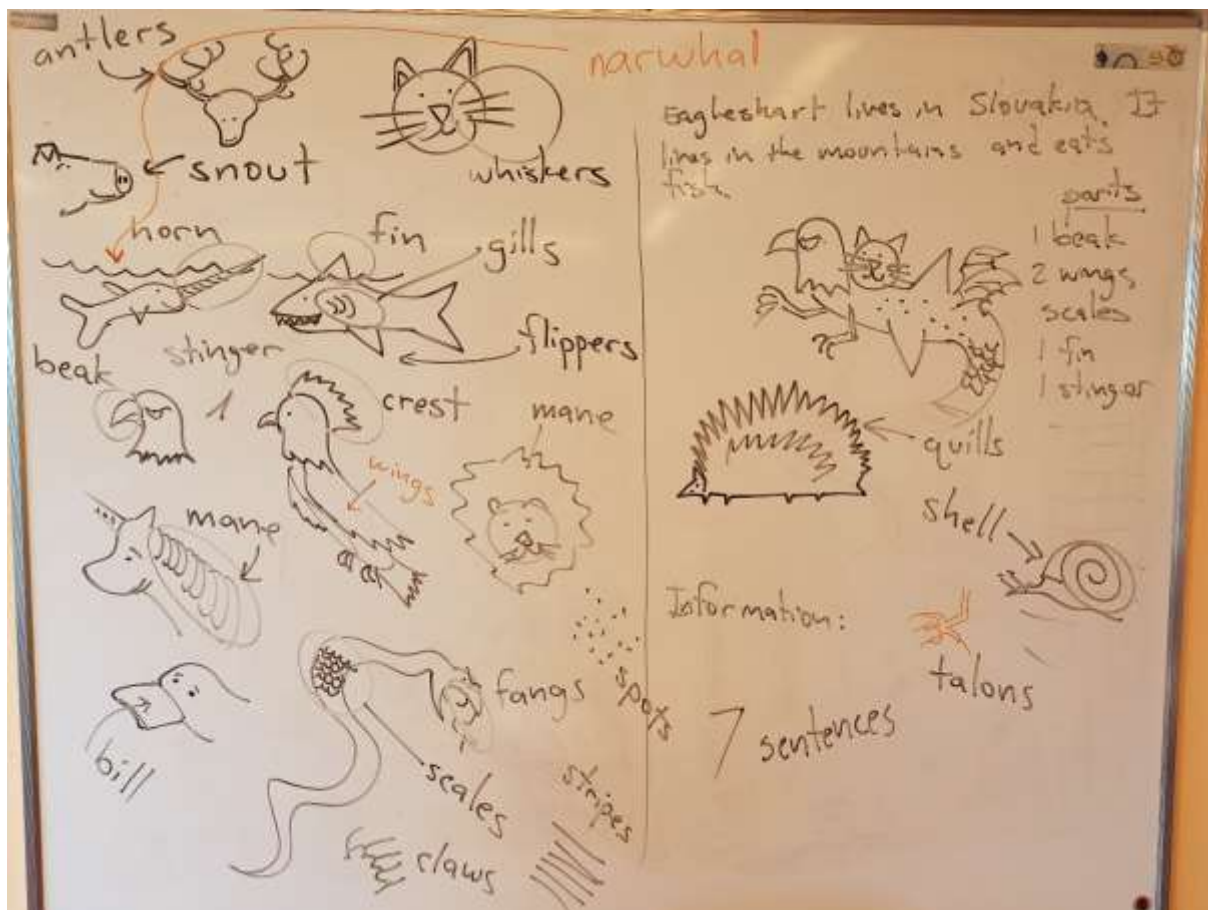 antlers
narwhal
snout
whiskers
horn
fin
gills
flippers
beak
stinger
crest
mane
wings
mane
bill
fangs
scales
spots
stripes
claws
Eagleshart lives in Slovakia. It
lives in the mountains and eats
fish.
parts
1 beak
2 wings
scales
1 fin
1 stinger
quills
shell
Information:
talons
7 sentences